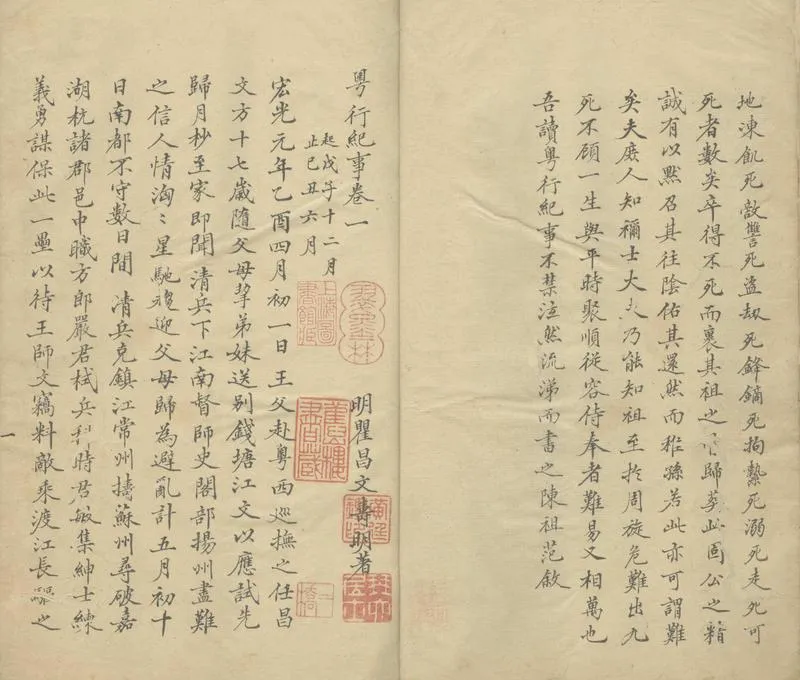 地凍飢死敵讐死盜刼死鋒鏑死拘縶死溺死走死可
死者數矣卒得不死而裹其祖之骨歸葬此固公之精
誠有以默召其往陰佑其還然而稚孫若此亦可謂難
矣夫庶人知禰士大夫乃能知祖至於周旋危難出九
死不顧一生與平時聚順從容侍奉者難易又相萬也
吾讀粤行紀事不禁泣然流涕而書之陳祖范敘
粤行紀事卷一
起戊子十二月
止己丑六月
明瞿昌文壽明著
宏光元年乙酉四月初一日王父赴粤西巡撫之任昌
文方十七歲隨父母挈弟妹送別錢塘江文以應試先
歸月杪至家即聞清兵下江南督師史閣部揚州盡難
之信人情洶〻星馳迎父母歸為避亂計五月初十
日南都不守數日間清兵克鎮江常州擣蘇州尋破嘉
湖杭諸郡邑中職方郎嚴君栻兵科時君敏集紳士練
義勇謀保此一壘以待王師文竊料敵乘渡江長驅之
一